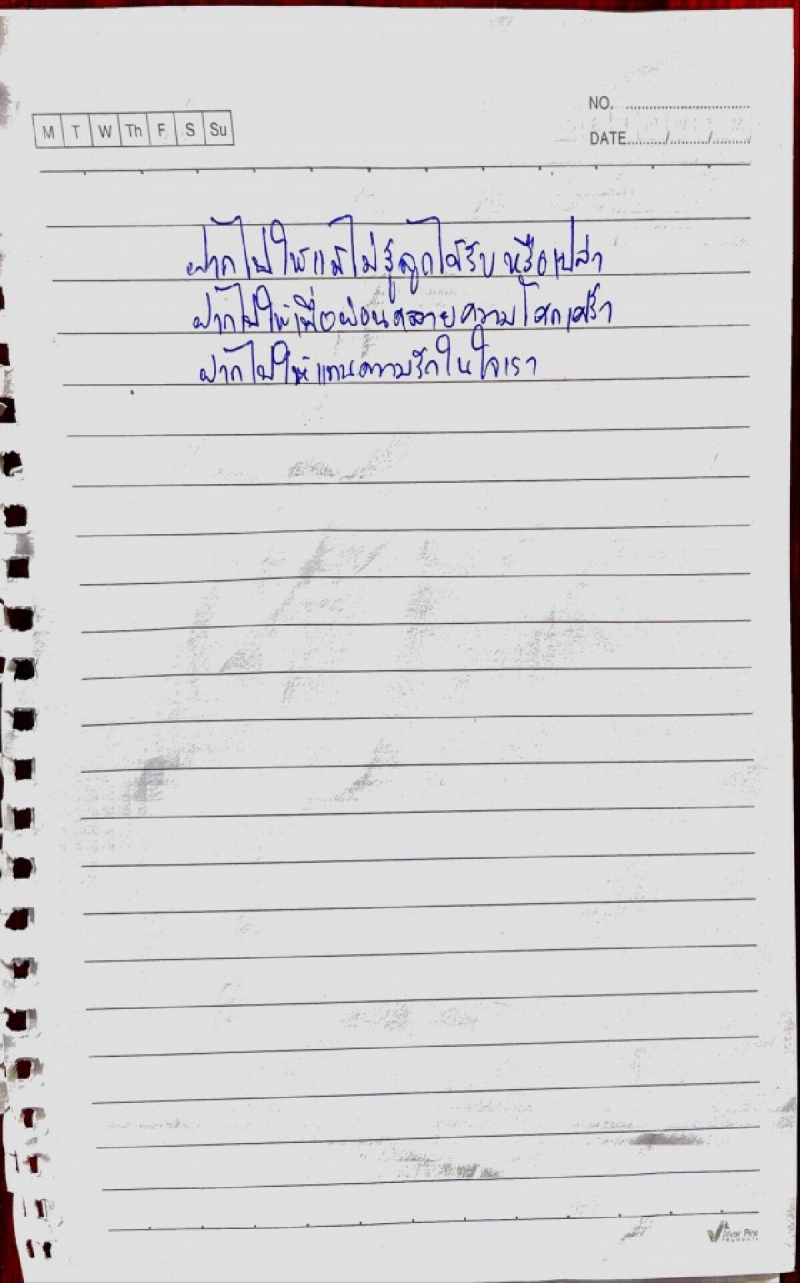 M T W Th F S Su
NO. ...............................
DATE........../........../..........
ฝากไปให้แม้ไม่รู้ลูกได้รับหรือเปล่า
ฝากไปให้เพื่อผ่อนคลายความโศกเศร้า
ฝากไปให้แทนความรักในใจเรา
Silver Pine
PRODUCTS